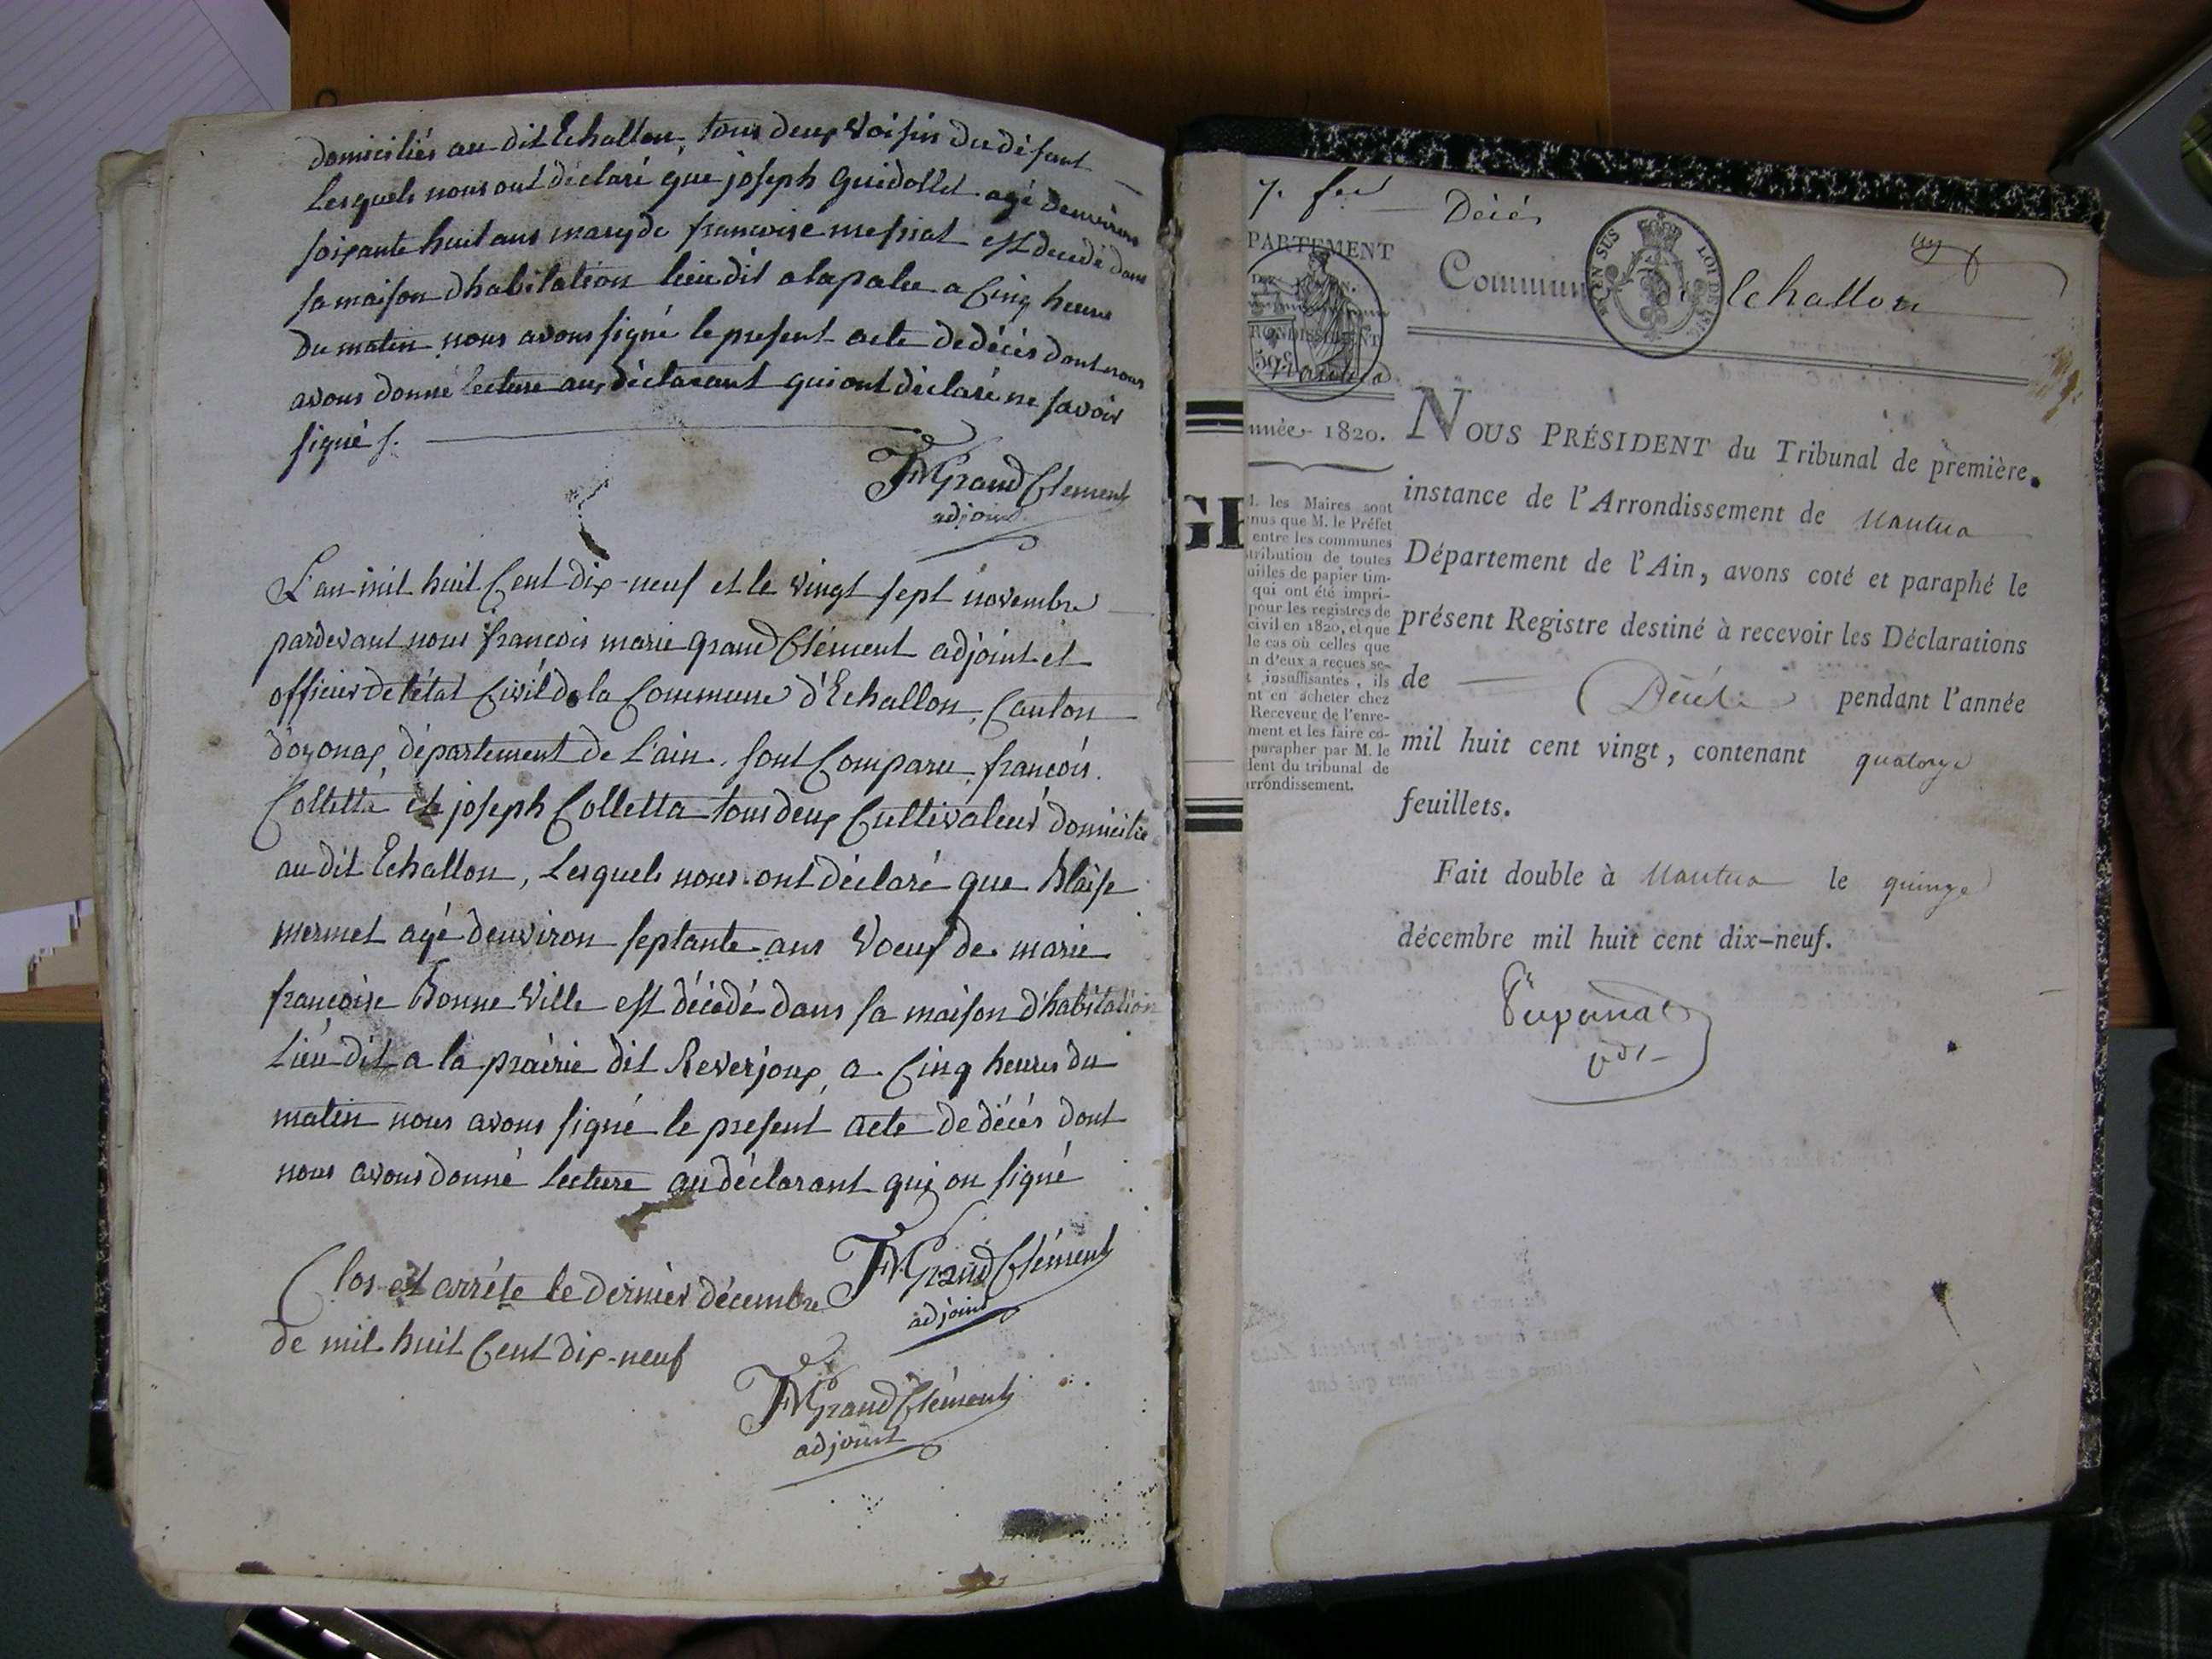 domiciliés au dit Echallon, tous deux voisin du défunt
Lesquels nous ont déclaré que joseph Guidollet agé denviron
soixante huit ans mary de francoise messiat est decedé dans
sa maison dhabitation lieu dit a lapalu a Cinq heures
du matin nous avons signé le present acte de décès dont nous
avons donné lecture aux déclarant qui ont déclaré ne savoir
signé f.
FMGrandClement
adjoint
L'an mil huit Cent dix-neuf et le vingt sept novembre
pardevant nous francois marie grand Clément adjoint et
officier de l'état Civil de la Commune d'Echallon, Canton
d'oyonax, département de L'ain. sont Comparu, francois.
Colletta et joseph Colletta tous deux Cultivateur domicilie
au dit Echallon, Lesquels nous ont déclaré que Blaise
mermet agé denviron septante ans Voeuf de marie
francoise Bonne Ville est décédé dans sa maison d'habitation
Lieu dit a la prairie dit Reverjoux, a Cinq heures du
matin nous avons signé le present acte de décès dont
nous avons donné lecture au déclarant qui on signé
FMGrandClément
adjoint
Clos et arréte le dernier décembre
de mil huit Cent dix-neuf
FMGrandClément
adjoint
GI
Décès
PARTEMENT
DE L'AIN.
RONDISSEMENT
Mantua
nnée 1820.
M. les Maires sont
nus que M. le Préfet
entre les communes
tribution de toutes
uilles de papier tim-
qui ont été impri-
pour les registres de
civil en 1820, et que
le cas où celles que
n d'eux a reçues se-
insuffisantes, ils
nt en acheter chez
Receveur de l'enre-
ment et les faire co-
parapher par M. le
dent du tribunal de
rrondissement.
Commun Echallon
EN SUS LOI DE
NOUS PRÉSIDENT du Tribunal de première
instance de l'Arrondissement de Nantua
Département de l'Ain, avons coté et paraphé le
présent Registre destiné à recevoir les Déclarations
de Décès pendant l'année
mil huit cent vingt, contenant quatorze
feuillets.
Fait double à Nantua le quinze
décembre mil huit cent dix-neuf.